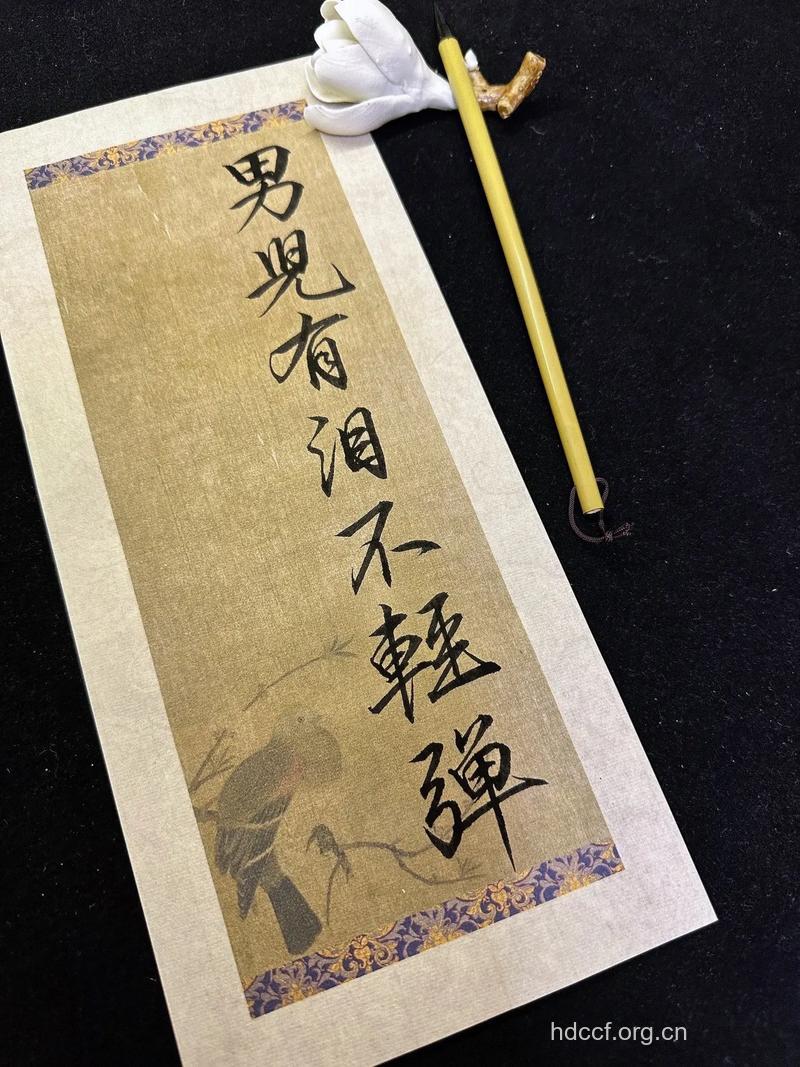 男児有泪不輕弾
hdccf.org.cn